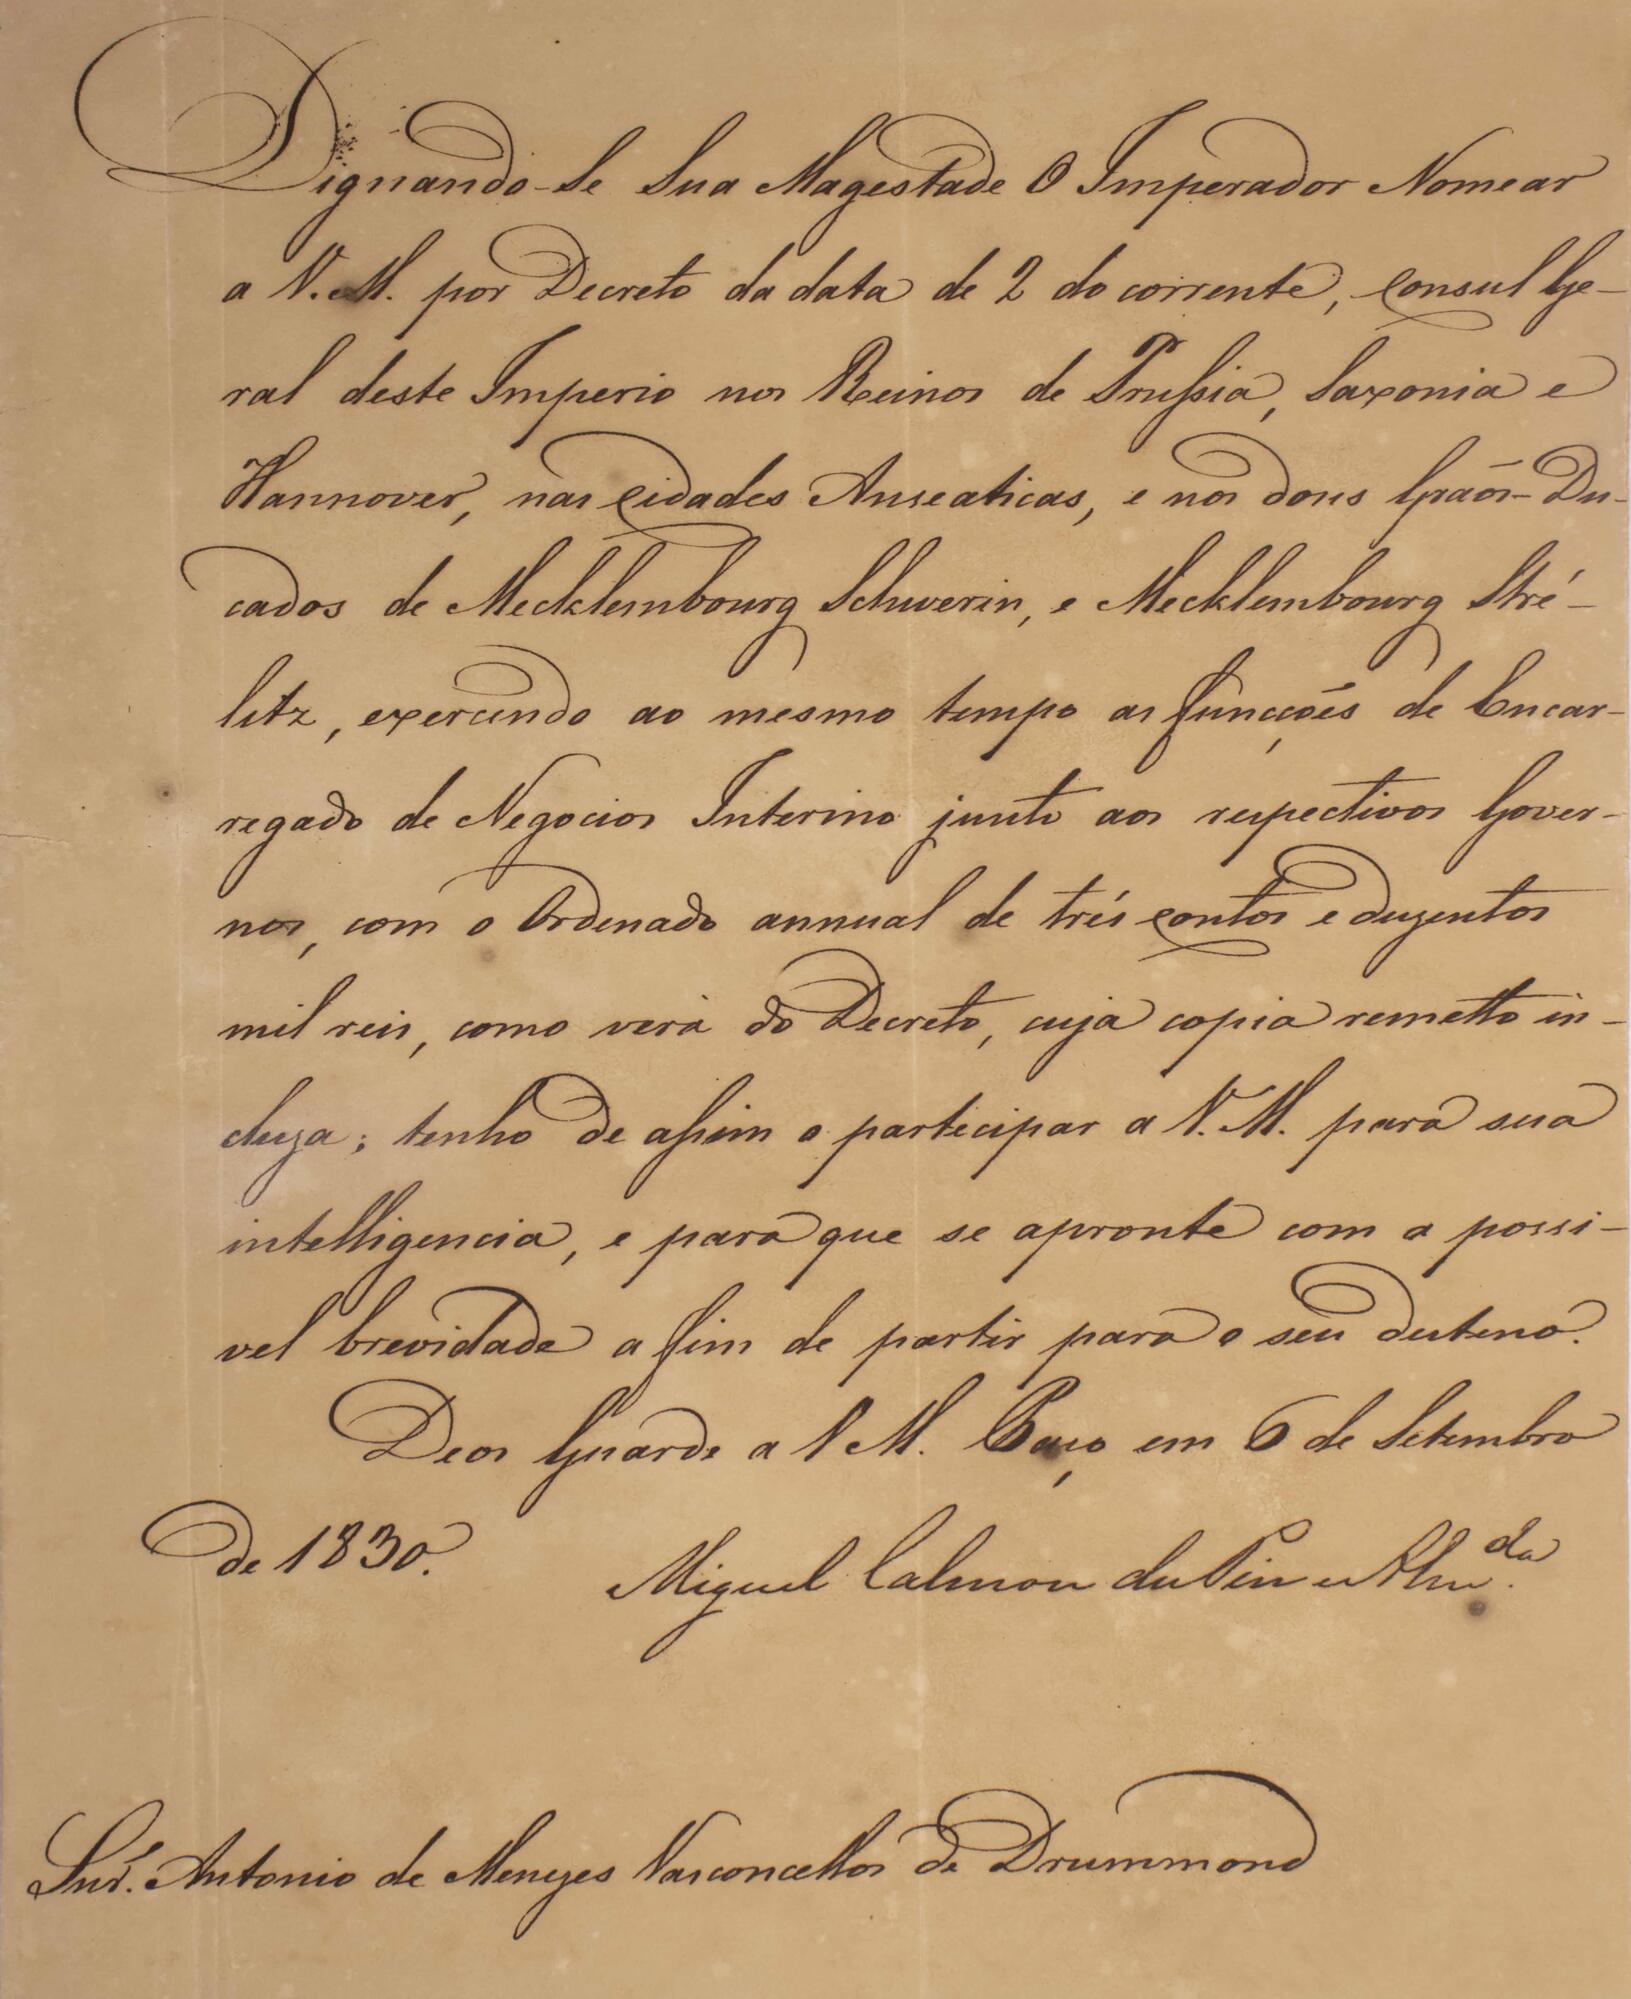 Dignando-Se Sua Magestade O Imperador Nomear
a V. M. por Decreto da data de 2 do corrente, Consul Ge-
ral deste Imperio nos Reinos de Prussia, Saxonia e
Hannover, nas Cidades Anseaticas, e nos dous Grãos-Du-
cados de Mecklembourg Schwerin, e Mecklembourg Stré-
litz, exercendo ao mesmo tempo as funcções de Encar-
regado de Negocios Interino junto aos respectivos Gover-
nos, com o Ordenado annual de trés contos e duzentos
mil reis, como verá do Decreto, cuja copia remetto in-
cluza; tenho de assim o participar a V. M. para sua
intelligencia, e para que se apronte com a possi-
vel brevidade a fim de partir para o seu destino.
Deos Guarde a V M. Paço em 6 de Setembro
de 1830.
Miguel Calmon du Pin e Alm.da
Snr. Antonio de Menezes Vasconcellos de Drummond